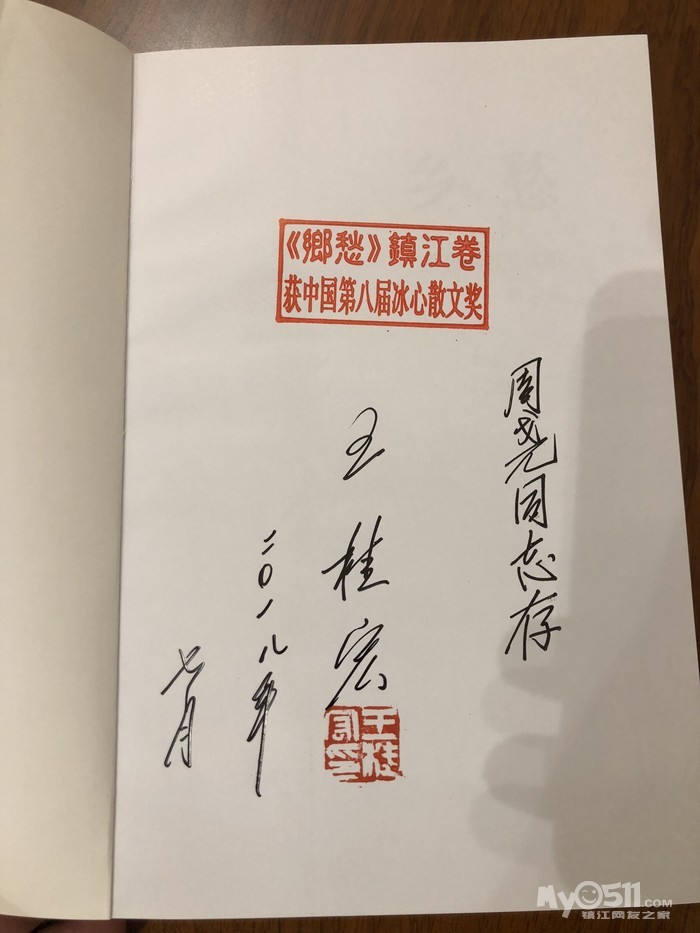 《鄉愁》鎮江卷
获中国第八届冰心散文奖
周尧同志存
王桂宏
二〇一八年
七月
王桂宏印
My0511.COM
镇江网友之家